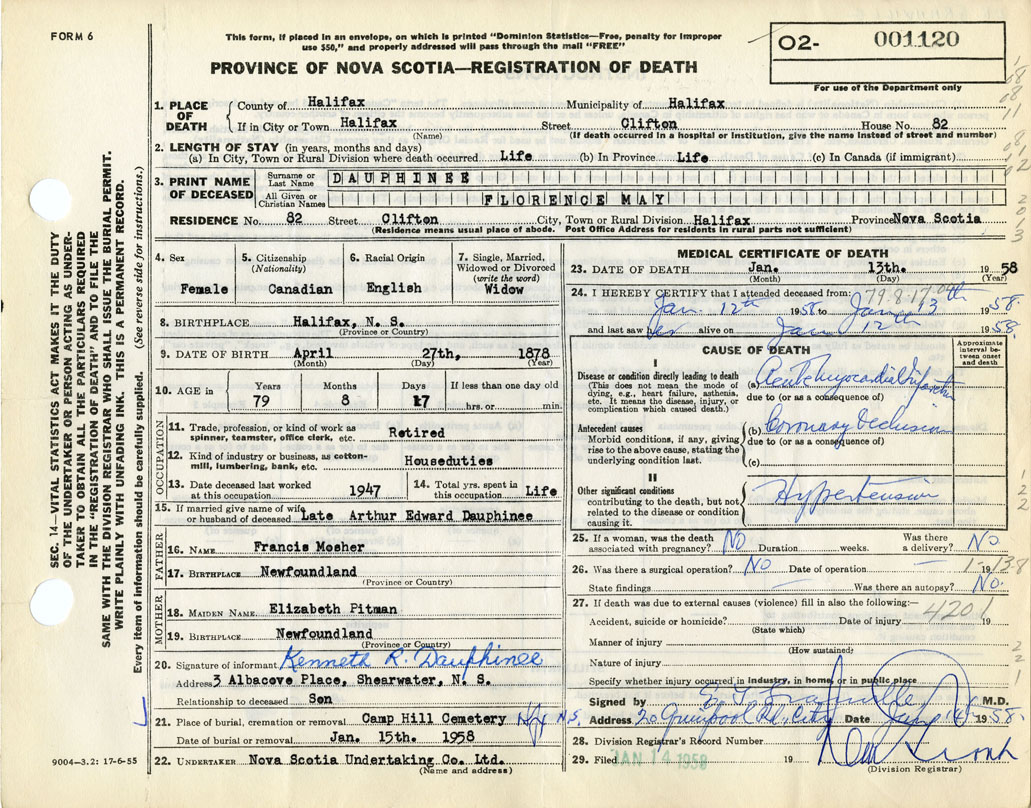 FORM 6
This form, if placed in an envelope, on which is printed "Dominion Statistics—Free, penalty for improper
use $50," and properly addressed will pass through the mail "FREE"
PROVINCE OF NOVA SCOTIA—REGISTRATION OF DEATH
02- 001120
For use of the Department only
1. PLACE OF DEATH
County of Halifax Municipality of Halifax
If in City or Town Halifax Street Clifton House No. 82
(Name) (If death occurred in a hospital or institution, give the name instead of street and number)
2. LENGTH OF STAY (in years, months and days)
(a) In City, Town or Rural Division where death occurred Life (b) In Province Life (c) In Canada (if immigrant)
3. PRINT NAME OF DECEASED
Surname or Last Name DAUPHINEE
All Given or Christian Names FLORENCE MAY
RESIDENCE No. 82 Street Clifton City, Town or Rural Division Halifax Province Nova Scotia
(Residence means usual place of abode. Post Office Address for residents in rural parts not sufficient)
4. Sex
Female
5. Citizenship
(Nationality)
Canadian
6. Racial Origin
English
7. Single, Married,
Widowed or Divorced
(write the word)
Widow
8. BIRTHPLACE Halifax, N. S.
(Province or Country)
9. DATE OF BIRTH April 27th, 1878
(Month) (Day) (Year)
10. AGE in
Years Months Days If less than one day old
79 8 17 hrs. or min.
OCCUPATION
11. Trade, profession, or kind of work as
spinner, teamster, office clerk, etc. Retired
12. Kind of industry or business, as cotton-
mill, lumbering, bank, etc. Houseduties
13. Date deceased last worked
at this occupation 1947
14. Total yrs. spent in
this occupation Life
15. If married give name of wife
or husband of deceased Late Arthur Edward Dauphinee
FATHER
16. NAME Francis Mosher
17. BIRTHPLACE Newfoundland
(Province or Country)
MOTHER
18. MAIDEN NAME Elizabeth Pitman
19. BIRTHPLACE Newfoundland
(Province or Country)
20. Signature of informant Kenneth R. Dauphinee
Address 3 Albacove Place, Shearwater, N. S.
Relationship to deceased Son
21. Place of burial, cremation or removal Camp Hill Cemetery Hfx N.S.
Date of burial or removal Jan. 15th. 1958
22. UNDERTAKER Nova Scotia Undertaking Co. Ltd.
(Name and address)
MEDICAL CERTIFICATE OF DEATH
23. DATE OF DEATH Jan. 13th. 1958
(Month) (Day) (Year)
24. I HEREBY CERTIFY that I attended deceased from:
Jan. 12th 1958 to Jan 13th 1958
and last saw her alive on Jan 12th 1958.
CAUSE OF DEATH
Approximate
interval be-
tween onset
and death
I
Disease or condition directly leading to death
(This does not mean the mode of
dying, e.g., heart failure, asthenia,
etc. It means the disease, injury, or
complication which caused death.)
(a) Acute Myocardial Infarction
due to (or as a consequence of)
Antecedent causes
Morbid conditions, if any, giving
rise to the above cause, stating the
underlying condition last.
(b) Coronary Occlusion
due to (or as a consequence of)
(c)
II
Other significant conditions
contributing to the death, but not
related to the disease or condition
causing it.
Hypertension
25. If a woman, was the death
associated with pregnancy? No Duration weeks. Was there
a delivery? No.
26. Was there a surgical operation? No Date of operation — 19
State findings — Was there an autopsy? No.
27. If death was due to external causes (violence) fill in also the following:—
Accident, suicide or homicide? Date of injury 19
4201
(State which)
Manner of injury
(How sustained)
Nature of injury
Specify whether injury occurred in industry, in home, or in public place
Signed by M.D.
Address 20 Quinpool Rd, City Date Jan 14 1958.
28. Division Registrar's Record Number
29. Filed JAN 14 1958 19
(Division Registrar)
SEC. 14—VITAL STATISTICS ACT MAKES IT THE DUTY
OF THE UNDERTAKER OR PERSON ACTING AS UNDER-
TAKER TO OBTAIN ALL THE PARTICULARS REQUIRED
IN THE "REGISTRATION OF DEATH" AND TO FILE THE
SAME WITH THE DIVISION REGISTRAR WHO SHALL ISSUE THE BURIAL PERMIT.
WRITE PLAINLY WITH UNFADING INK. THIS IS A PERMANENT RECORD.
Every item of information should be carefully supplied. (See reverse side for instructions.)
9004—3.2: 17-6-55